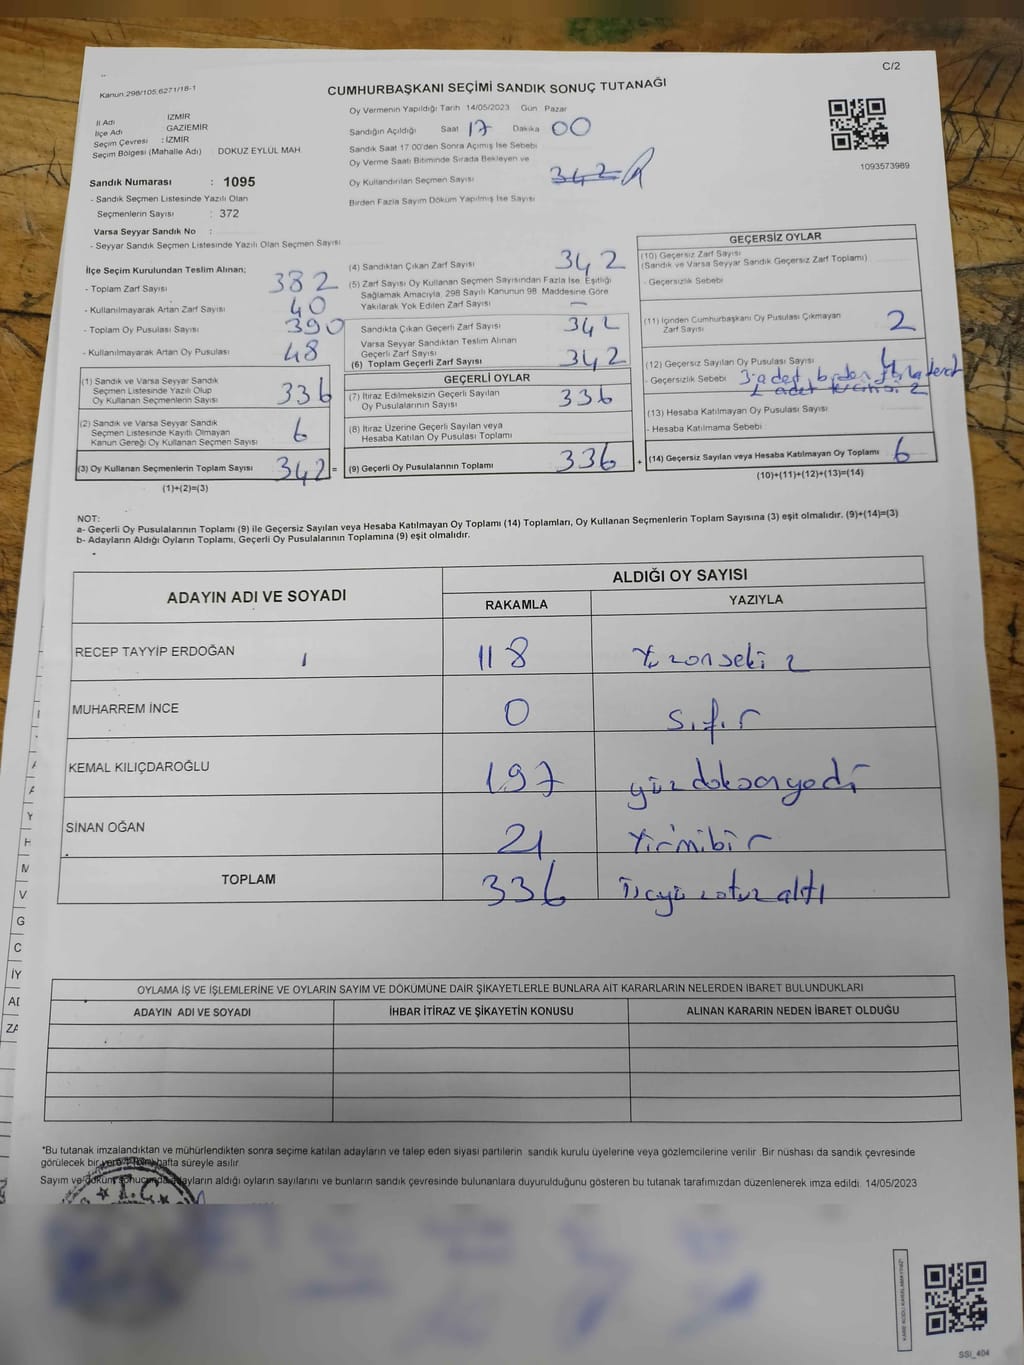 C/2
Kanun 298/105,6271/18-1
CUMHURBAŞKANI SEÇİMİ SANDIK SONUÇ TUTANAĞI
İl Adı İZMİR
İlçe Adı GAZİEMİR
Seçim Çevresi : İZMİR
Seçim Bölgesi (Mahalle Adı) DOKUZ EYLÜL MAH.
Oy Vermenin Yapıldığı Tarih 14/05/2023 Gün Pazar
Sandığın Açıldığı Saat 17 Dakika 00
Sandık Saat 17:00'den Sonra Açımış İse Sebebi
Oy Verme Saati Bitiminde Sırada Bekleyen ve
Oy Kullandırılan Seçmen Sayısı 342
Birden Fazla Sayım Döküm Yapılmış İse Sayısı
1093573989
Sandık Numarası : 1095
- Sandık Seçmen Listesinde Yazılı Olan
Seçmenlerin Sayısı : 372
Varsa Seyyar Sandık No :
- Seyyar Sandık Seçmen Listesinde Yazılı Olan Seçmen Sayısı
İlçe Seçim Kurulundan Teslim Alınan;
- Toplam Zarf Sayısı 382
- Kullanılmayarak Artan Zarf Sayısı 40
- Toplam Oy Pusulası Sayısı 390
- Kullanılmayarak Artan Oy Pusulası 48
(1) Sandık ve Varsa Seyyar Sandık
Seçmen Listesinde Yazılı Olup
Oy Kullanan Seçmenlerin Sayısı 336
(2) Sandık ve Varsa Seyyar Sandık
Seçmen Listesinde Kayıtlı Olmayan
Kanun Gereği Oy Kullanan Seçmen Sayısı 6
(3) Oy Kullanan Seçmenlerin Toplam Sayısı 342 =
(1)+(2)=(3)
(4) Sandıktan Çıkan Zarf Sayısı 342
(5) Zarf Sayısı Oy Kullanan Seçmen Sayısından Fazla İse, Eşitliği
Sağlamak Amacıyla, 298 Sayılı Kanunun 98. Maddesine Göre
Yakılarak Yok Edilen Zarf Sayısı –
Sandıkta Çıkan Geçerli Zarf Sayısı 342
Varsa Seyyar Sandıktan Teslim Alınan
Geçerli Zarf Sayısı
(6) Toplam Geçerli Zarf Sayısı 342
GEÇERLİ OYLAR
(7) İtiraz Edilmeksizin Geçerli Sayılan
Oy Pusulalarının Sayısı 336
(8) İtiraz Üzerine Geçerli Sayılan veya
Hesaba Katılan Oy Pusulası Toplamı
(9) Geçerli Oy Pusulalarının Toplamı 336 +
GEÇERSİZ OYLAR
(10) Geçersiz Zarf Sayısı
(Sandık ve Varsa Seyyar Sandık Geçersiz Zarf Toplamı)
- Geçersizlik Sebebi
(11) İçinden Cumhurbaşkanı Oy Pusulası Çıkmayan
Zarf Sayısı 2
(12) Geçersiz Sayılan Oy Pusulası Sayısı 4
- Geçersizlik Sebebi 3 adet birden fazla tercih
1 adet
(13) Hesaba Katılmayan Oy Pusulası Sayısı
- Hesaba Katılmama Sebebi
(14) Geçersiz Sayılan veya Hesaba Katılmayan Oy Toplamı 6
(10)+(11)+(12)+(13)=(14)
NOT:
a- Geçerli Oy Pusulalarının Toplamı (9) ile Geçersiz Sayılan veya Hesaba Katılmayan Oy Toplamı (14) Toplamları, Oy Kullanan Seçmenlerin Toplam Sayısına (3) eşit olmalıdır. (9)+(14)=(3)
b- Adayların Aldığı Oyların Toplamı, Geçerli Oy Pusulalarının Toplamına (9) eşit olmalıdır.
ADAYIN ADI VE SOYADI
ALDIĞI OY SAYISI
RAKAMLA YAZIYLA
RECEP TAYYİP ERDOĞAN 118 Yüzonsekiz
MUHARREM İNCE 0 sıfır
KEMAL KILIÇDAROĞLU 197 yüzdoksanyedi
SİNAN OĞAN 21 Yirmibir
TOPLAM 336 üçyüzotuzaltı
OYLAMA İŞ VE İŞLEMLERİNE VE OYLARIN SAYIM VE DÖKÜMÜNE DAİR ŞİKAYETLERLE BUNLARA AİT KARARLARIN NELERDEN İBARET BULUNDUKLARI
ADAYIN ADI VE SOYADI İHBAR İTİRAZ VE ŞİKAYETİN KONUSU ALINAN KARARIN NEDEN İBARET OLDUĞU
*Bu tutanak imzalandıktan ve mühürlendikten sonra seçime katılan adayların ve talep eden siyasi partilerin sandık kurulu üyelerine veya gözlemcilerine verilir .Bir nüshası da sandık çevresinde
görülecek bir yere 1 (Bir) hafta süreyle asılır
Sayım ve döküm sonucunda adayların aldığı oyların sayılarını ve bunların sandık çevresinde bulunanlara duyurulduğunu gösteren bu tutanak tarafımızdan düzenlenerek imza edildi. 14/05/2023
T.C.
SSI_404